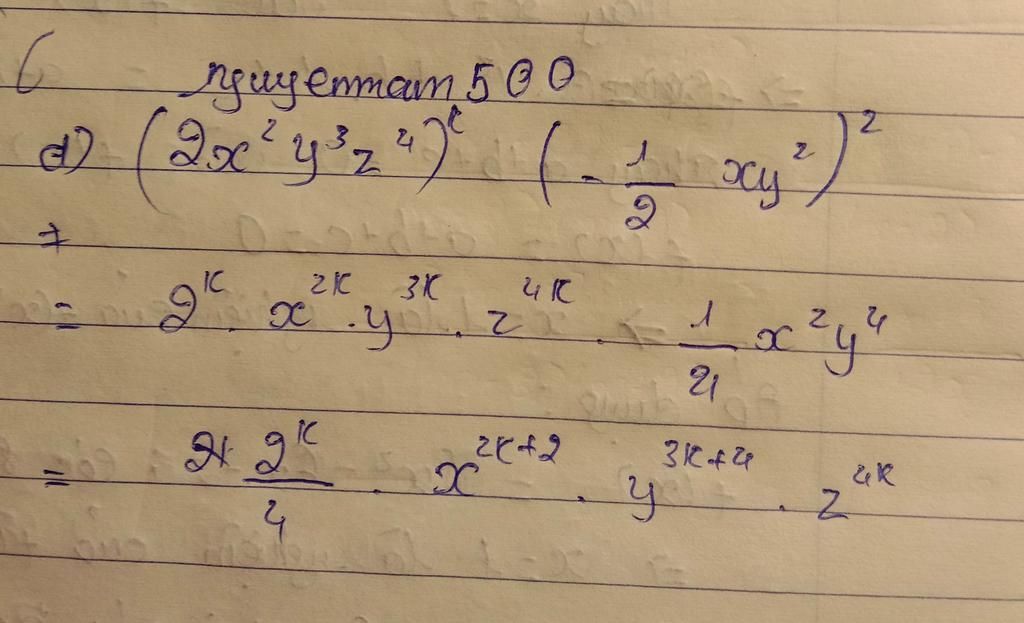 nguyenmam500
d) (2x²y³z⁴)ᵏ (-1/2 xy²)²
= 2ᴷ . x²ᴷ . y³ᴷ . z⁴ᴷ . 1/4 x²y⁴
= 2ᴷ/4 . x²ᴷ⁺² . y³ᴷ⁺⁴ . z⁴ᴷ